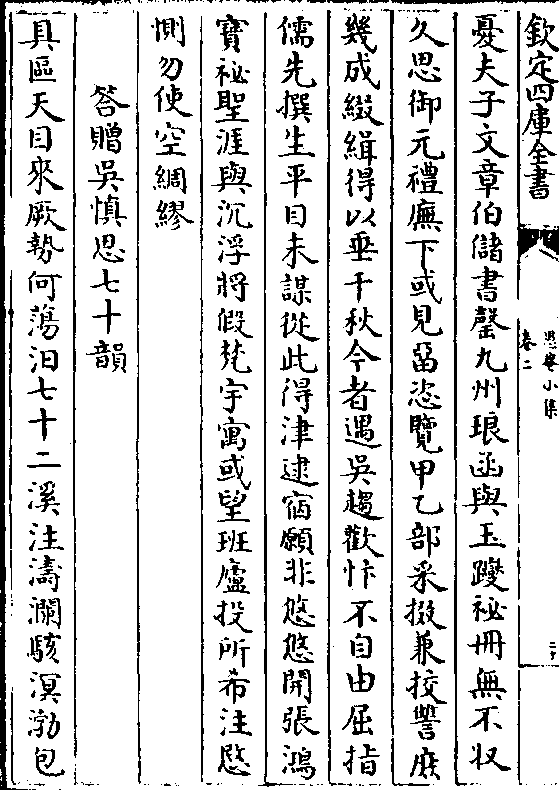 欽定四庫全書
卷二
憂夫子文章伯儲書罄九州琅函與玉躞祕冊無不収
久思御元禮廡下或見畱恣覽甲乙部采掇兼挍讐庻
幾成綴緝得以垂千秋今者遇吳趨歡忭不自由屈指
儒先撰生平目未謀從此得津逮宿願非悠悠開張鴻
寶祕聖涯與沉浮將假梵宇寓或望班廬投所希注慇
惻勿使空綢繆
答贈吳慎思七十韻
具區天目來厥勢何蕩汩七十二溪注濤瀾駭溟渤包